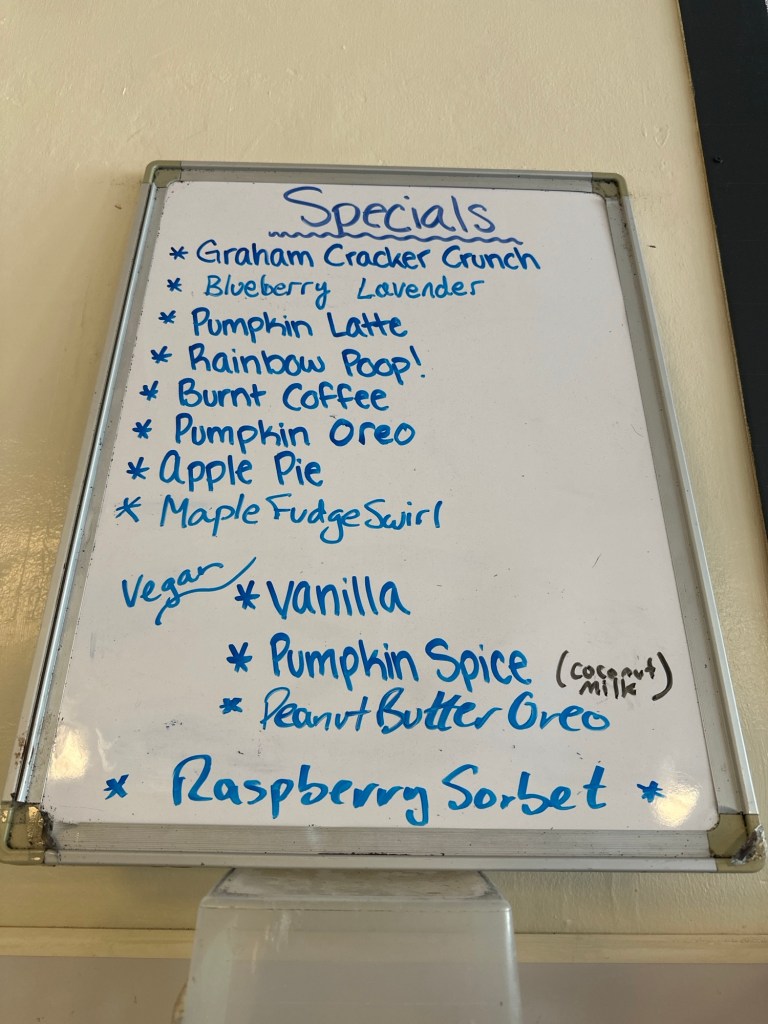 Specials
* Graham Cracker Crunch
* Blueberry Lavender
* Pumpkin Latte
* Rainbow Poop!
* Burnt Coffee
* Pumpkin Oreo
* Apple Pie
* Maple Fudge Swirl
Vegan * Vanilla
* Pumpkin Spice (coconut milk)
* Peanut Butter Oreo
* Raspberry Sorbet *